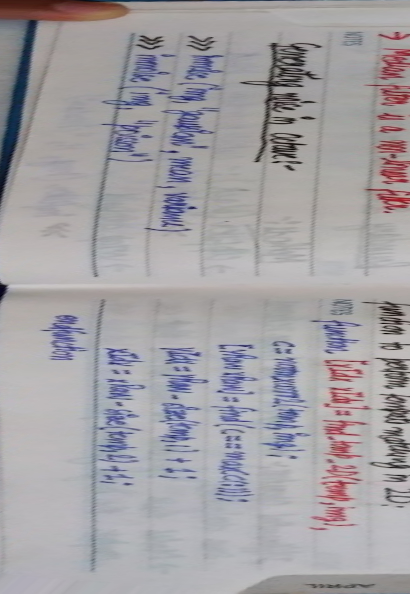 → Median filter is a non-linear filter.
NOTES
Generating noise in octave:-
>>> imnoise (img, 'gaussian', mean, variance)
>>> imnoise (img, 'poisson')
function to perform template matching in 2D:
NOTES
function [xIdx yIdx] = find_temp_2D(temp, img)
c = normxcorr2(temp, img);
[yRaw xRaw] = find(c == max(c(:)));
yIdx = yRaw - size(temp, 1) + 1;
xIdx = xRaw - size(temp, 2) + 1;
endfunction
APRIL